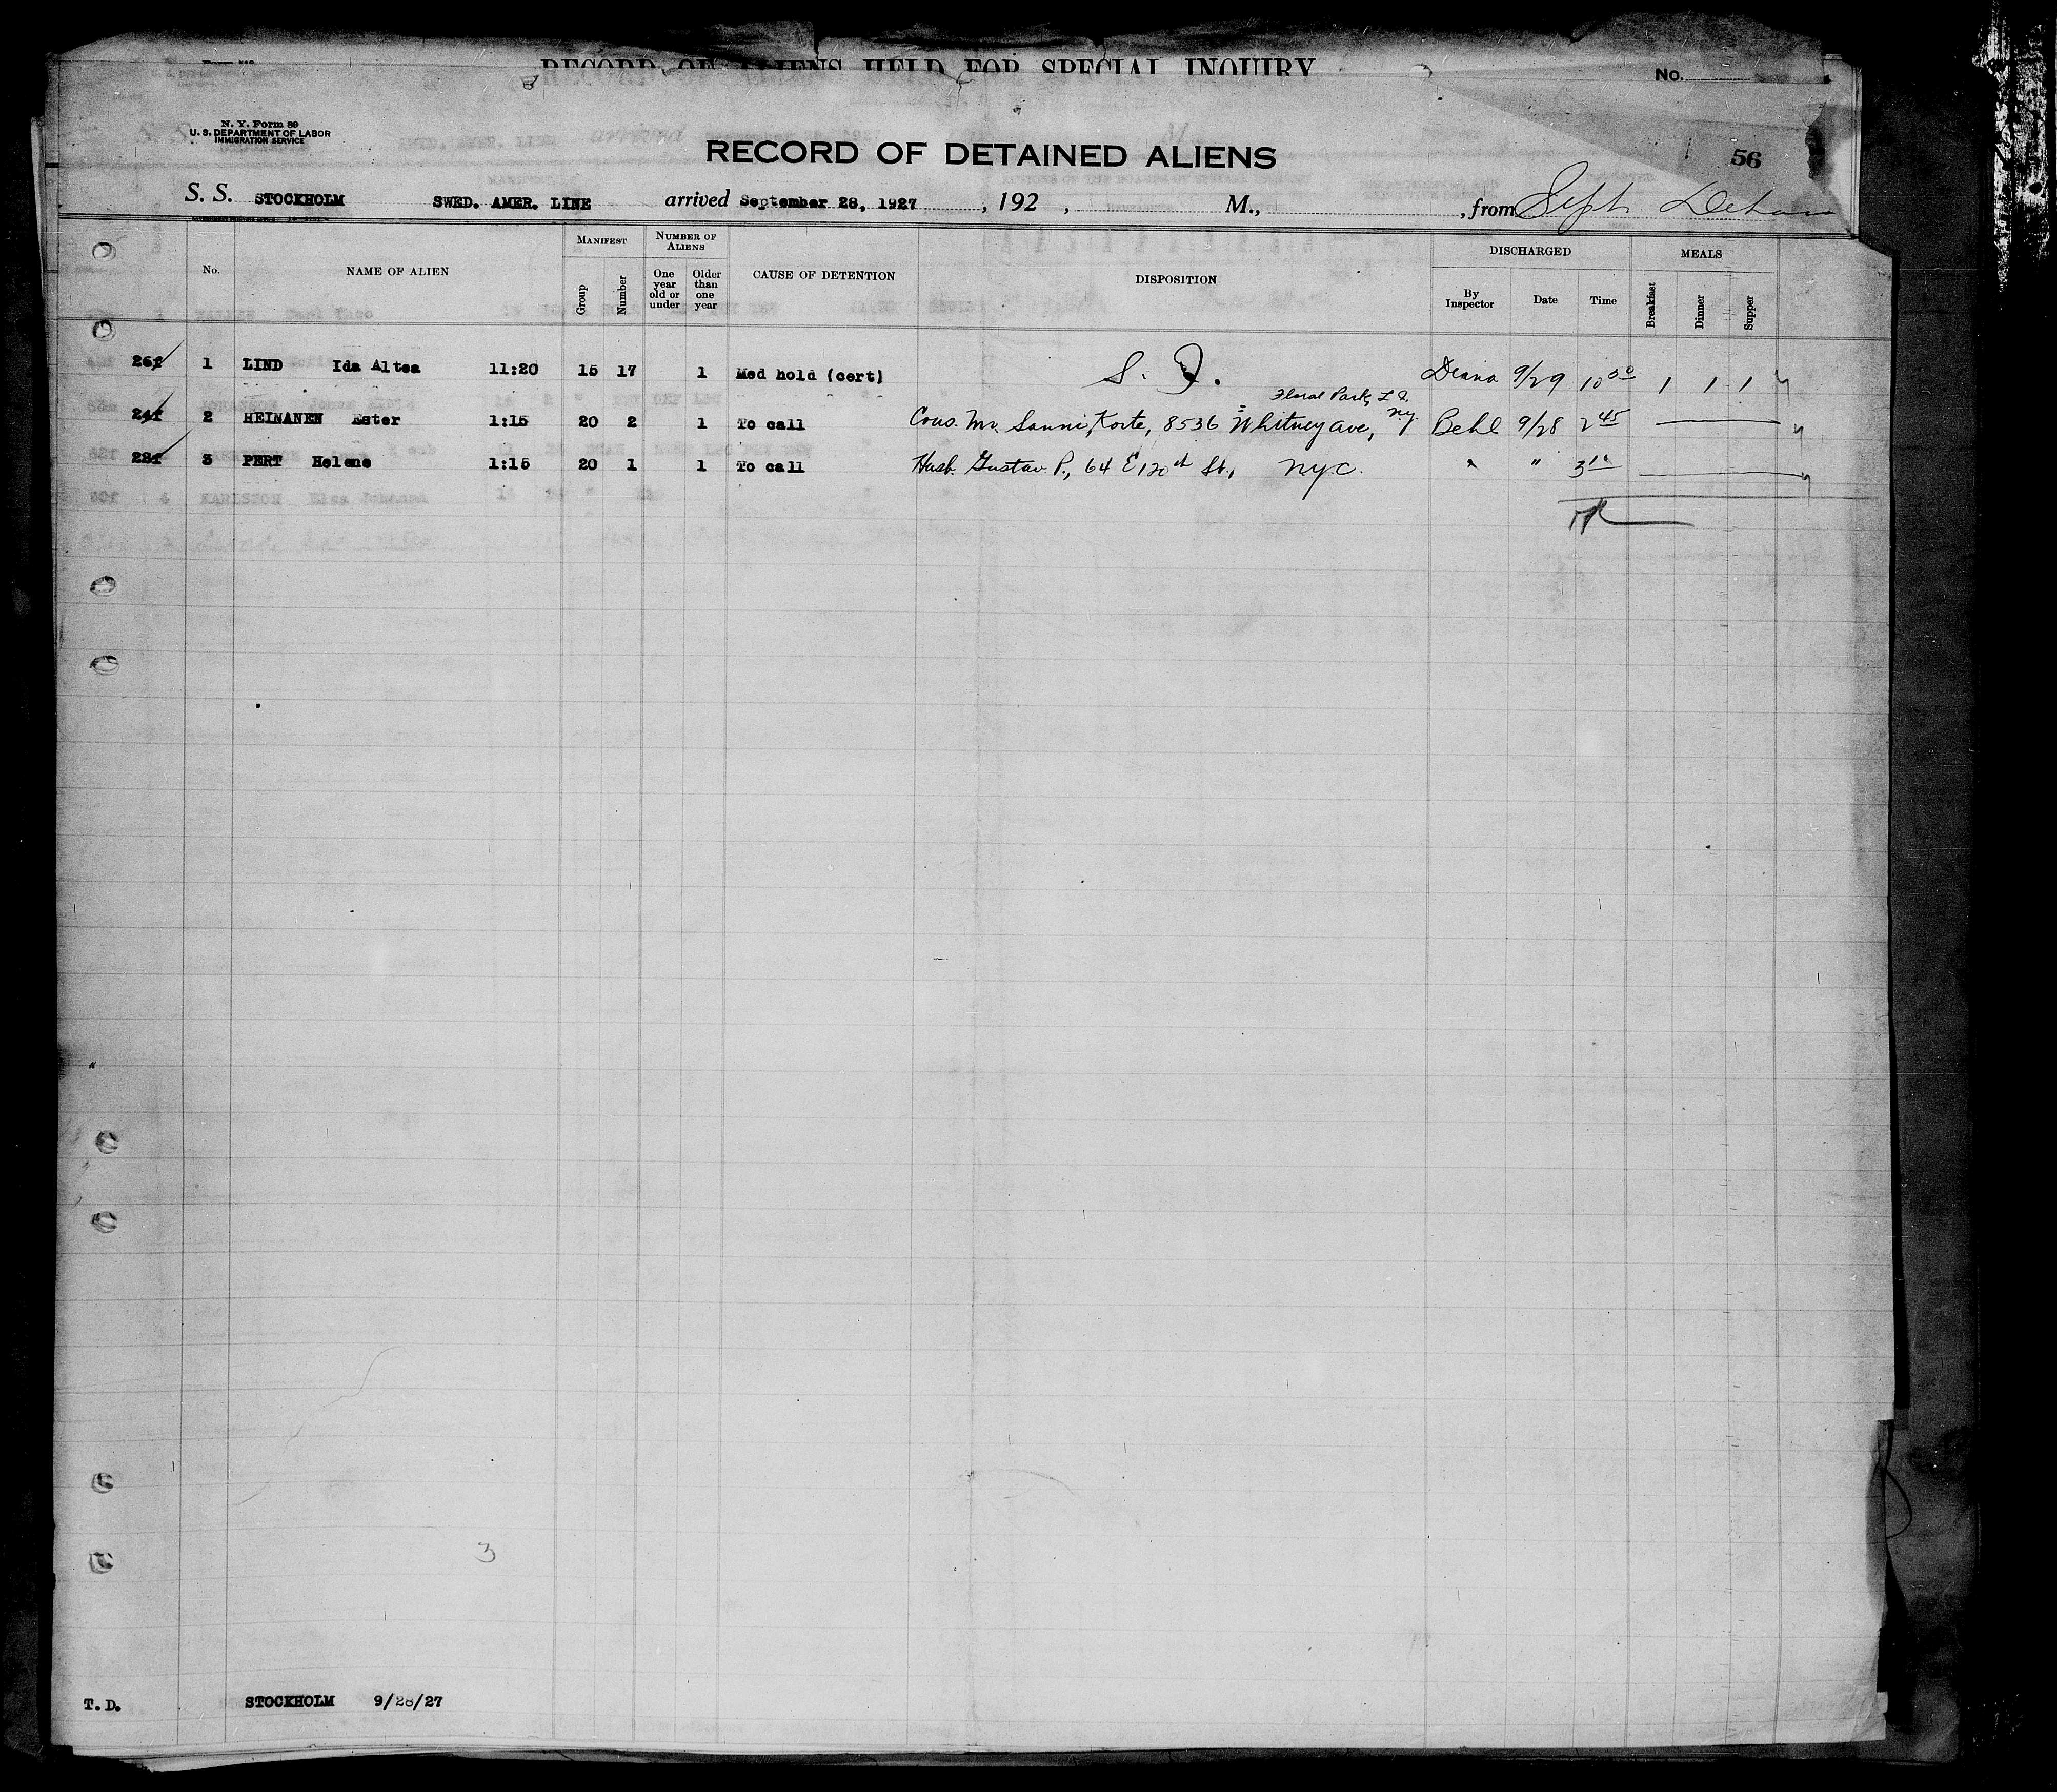 RECORD OF ALIENS HELD FOR SPECIAL INQUIRY
No.
N. Y. Form 89
U. S. DEPARTMENT OF LABOR
IMMIGRATION SERVICE
RECORD OF DETAINED ALIENS
56
S. S. STOCKHOLM SWED. AMER. LINE arrived September 28, 1927, 192 , M., , from Sept
No. NAME OF ALIEN MANIFEST Group Number NUMBER OF ALIENS One year old or under Older than one year CAUSE OF DETENTION DISPOSITION DISCHARGED By Inspector Date Time MEALS Breakfast Dinner Supper
26f 1 LIND Ida Altea 11:20 15 17 1 Med hold (cert) S. I. Deana 9/29 10 00 1 1 1
Floral Park, L I.
24f 2 HEIMANEN Ester 1:15 20 2 1 To call Cous. Mr. Sanni Korte, 8536 Whitney ave, NY. Behl 9/28 2 45
28f 3 PERT Helene 1:15 20 1 1 To call Husb. Gustav P., 64 E 120th St., NYC. " " 3 10
3
T.D. STOCKHOLM 9/28/27